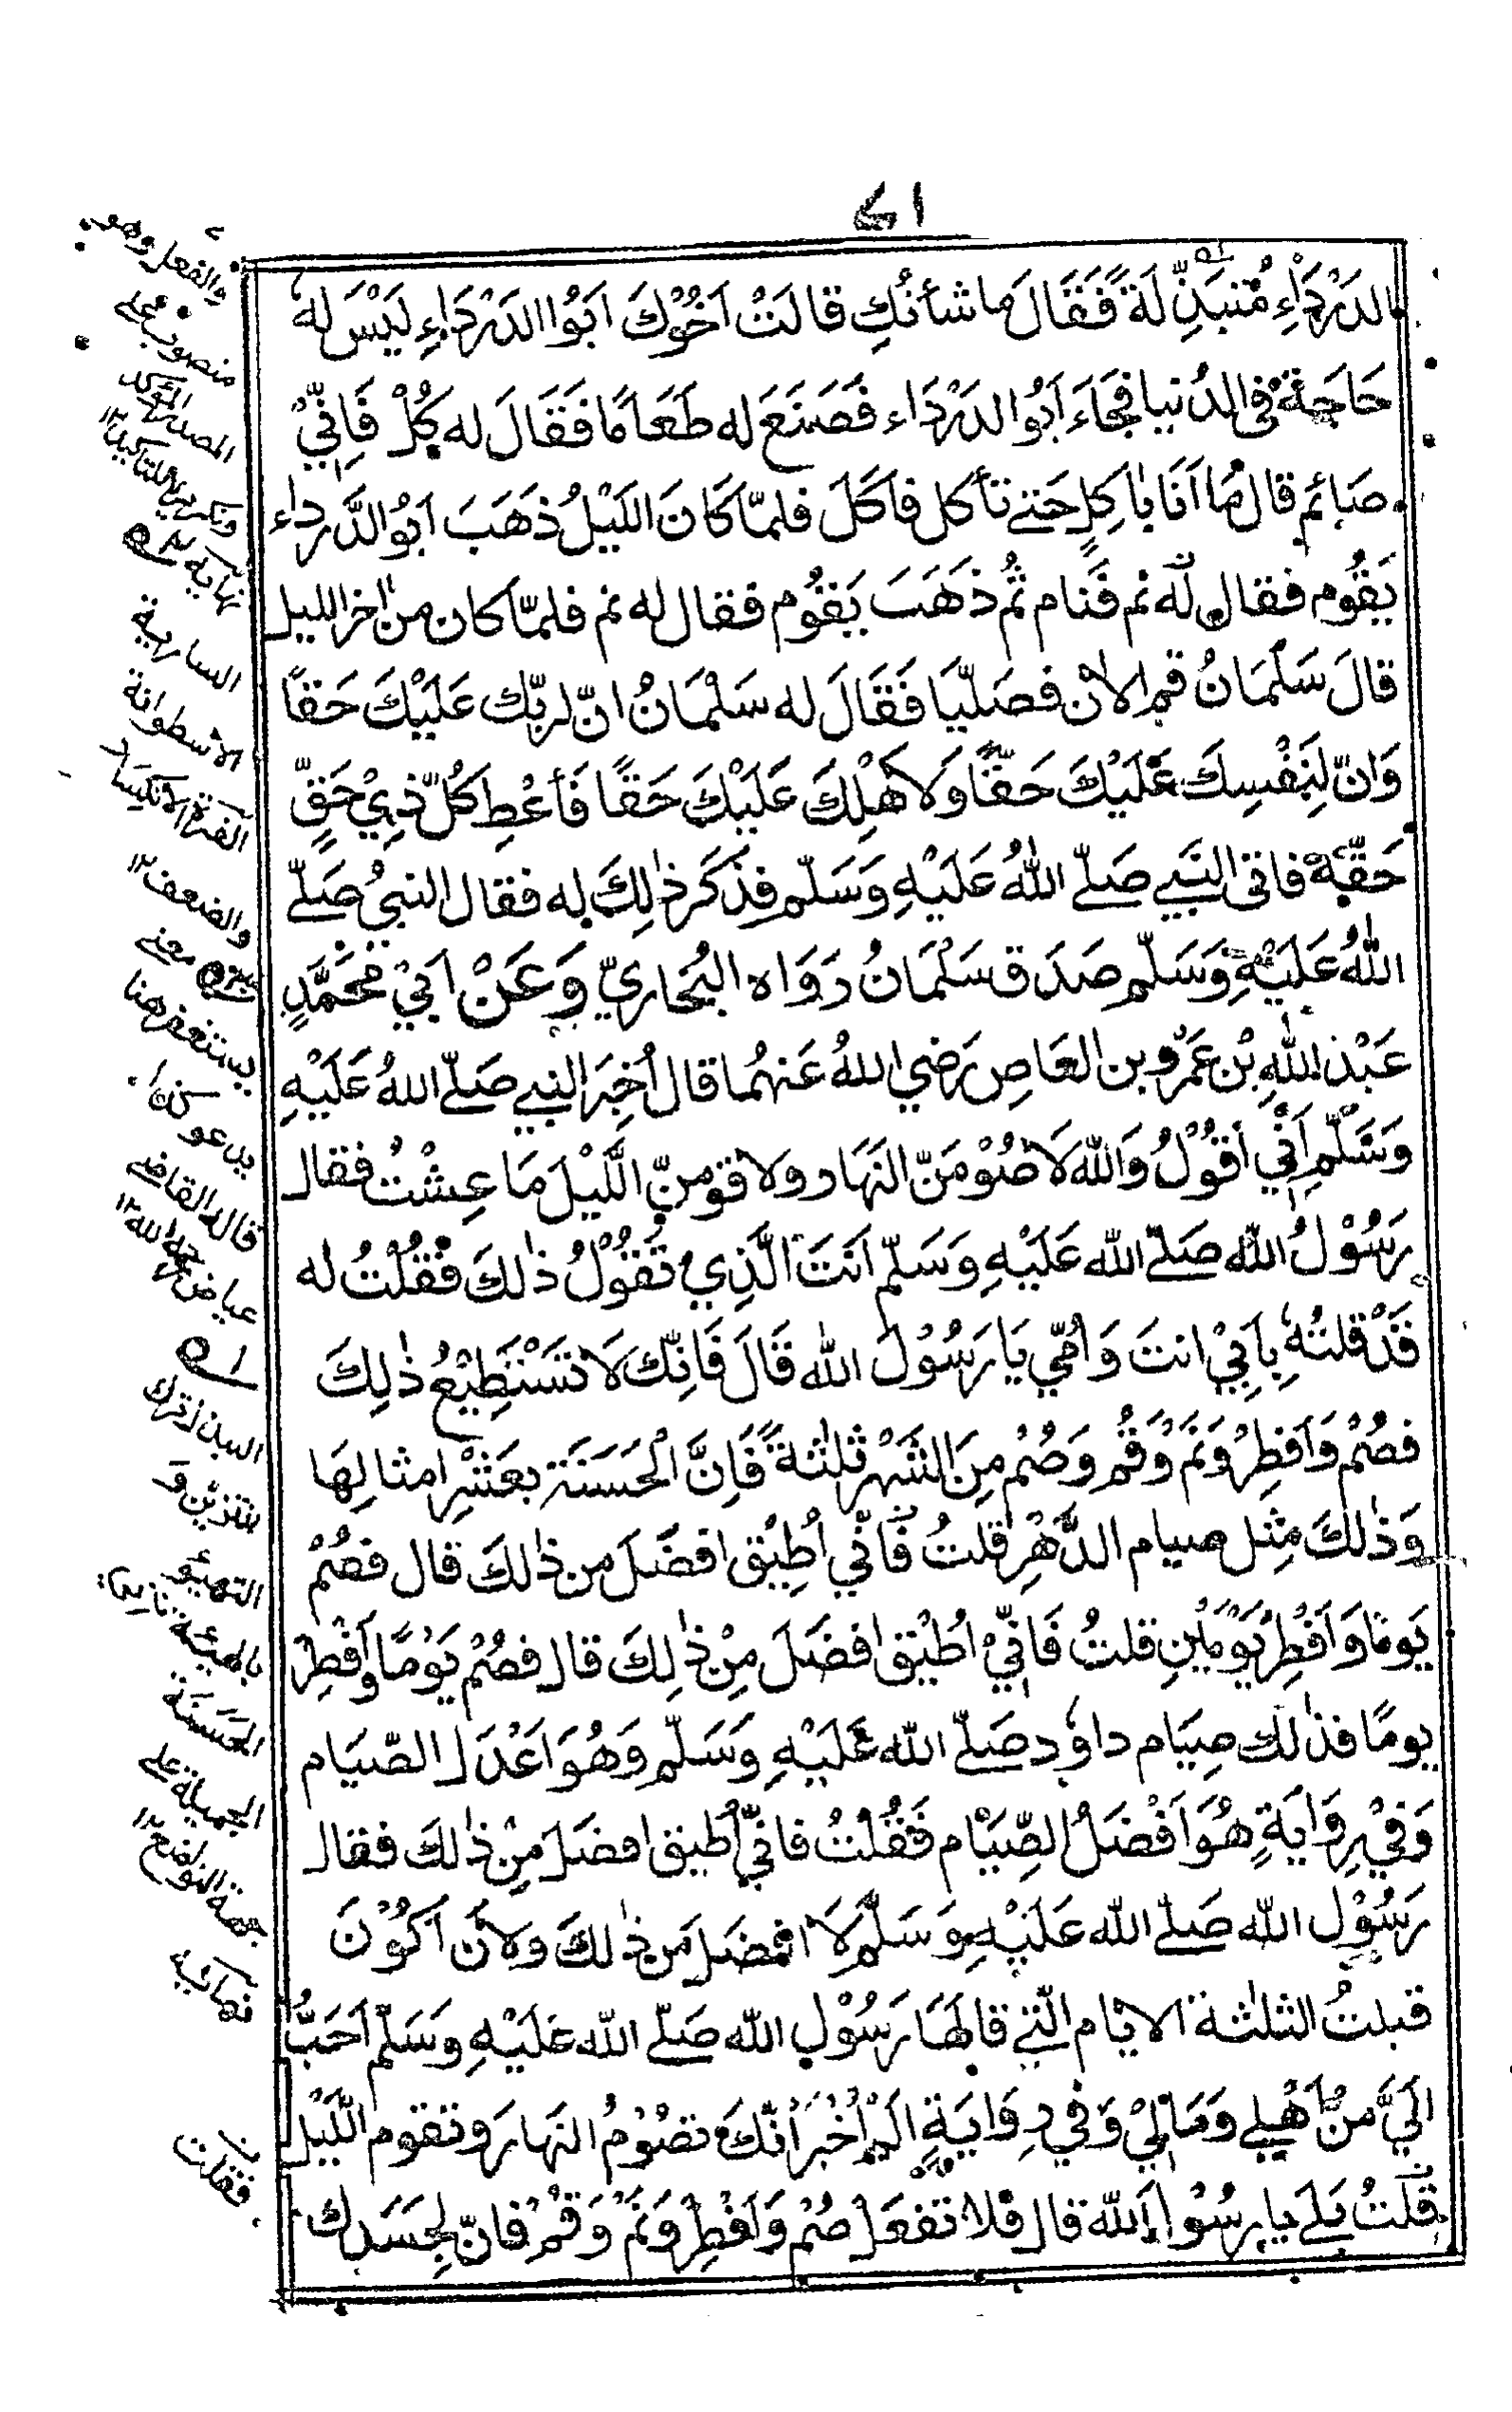 ٧١
الدَرْدَاءِ مُتبَذِّلَةً فَقَالَ مَا شأنُكِ قالَتْ اَخُوْكَ اَبُوا الدَرْدَاءِ لَيْسَ لهٗ
حَاجَةٌ فی الدُنيا فجَاءَ اَبُو الدَرْدَاء فَصَنَعَ له طَعَامًا فَقَالَ له كُلْ فَاِنّيْ
صَائم قال مَا اَنَا بٰاكِلٍ حَتےٰ تأكل فاَكَلَ فلمّا كَانَ اللَيْلُ ذَهَبَ اَبُو الدَّرداء
يَقُوم فقال لَه نم فَنام ثُم ذَهَبَ يَقُوم فقال له نم فلمّا كان من اٰخر الليل
قالَ سَلْمَانُ قم الاٰن فصَلّيَا فَقَالَ له سَلْمَانُ انّ لربّك عَلَيْكَ حَقاً
وَانّ لِنَفْسِكَ عَلَيْكَ حَقّاً وَلاَهْلِكَ عَلَيْكَ حَقًا فَأعْطِ كُلّ ذِيْ حَقٍّ
حَقَّهٗ فاتی النَبے صَلّے اللهُ عَلَيْهِ وَسَلّم فذَكَر ذٰلِكَ له فقال النبيُ صَلّے
اللهُ عَلَيْهِ وَسَلّم صَدَق سَلْمَانُ رَوَاه البُخَاريّ وَعَنْ اَبيْ مُحَمَّدٍ
عَبْدِ اللهِ بْن عَمْرو بن العَاصِ رَضي اللهُ عَنهُما قال اُخبِرَ النبے صَلّے اللهُ عَلَيْهِ
وَسَلّم اَنّي اَقُوْلُ وَاللهِ لَاَصُوْمَنّ النَهَار ولاَقومنّ اللَّيْلَ مَا عِشْتُ فقال
رَسُوْلُ الله صَلّے الله عَلَيْهِ وَسَلّم اَنتَ الَّذِي تَقُوْلُ ذٰلكَ فقُلْتُ له
قَدْ قلتهٗ بِاَبِيْ انتَ وَاُمّي يَا رَسُوْلَ الله قَالَ فَاِنّكَ لاَ تَسْتَطِيْعُ ذٰلِكَ
فصُمْ وَاَفطِرْ وَنَم وَقُم وَصُمْ مِنَ الشَهْر ثلٰثةً فَاِنَّ الْحَسَنَة بعَشْرِ امثالِهَا
وَذٰلكَ مِثل صيام الدَّهْرِ قلتُ فَانّي اُطِيْق افضَلَ من ذٰلكَ قال فصُمْ
يَومًا وَاَفْطِرْ يَوْمَيْنِ قلتُ فَاِنّيْ اُطيْق افضَلَ مِنْ ذٰلِكَ قال فصُمْ يَوْمًا وَاَفْطِرْ
يومًا فذٰلك صِيَام داوٗد صَلّے الله عَلَيْهِ وَسَلّم وَهُوَ اَعْدَل الصّيَام
وَفيْ رِوَايَةٍ هُوَ اَفْضَلُ الصِّيَام فَقُلْتُ فانّي اُطيق افضَل مِنْ ذٰلكَ فقال
رَسُوْل الله صَلّے الله عَلَيْهِ وَسَلّم لاَ افضَل مَن ذٰلكَ ولاَن اَكُوْنَ
قبلتُ الثلٰثة الايّام الّتے قالَهَا رَسُوْل الله صَلّے الله عَلَيْهِ وَسَلّم اَحَبُّ
اِلَيَّ مِنْ اَهْلے وَمَالِيْ وَفي رِوَايَةٍ اَلَم اُخْبَر اَنّكَ تَصُوْمُ النهارَ وتَقوم اللَّيْل
قلتُ بَلے يا رسُوْل الله قال فلا تفعَل صُمْ وَاَفطِرْ وَنَم وَقُمْ فانّ لِجَسَدِك
والفعل وهو
منصوب على
المصدر المؤكد
وتكريره للتاكيد ١٢
نهايه
السارية
الاسطوانة
الفترة الانكسار
والضعف ١٢
معنے
يستغفر هنا
يدعو
قاله القاضے
عياض رحمه الله ١٢
بالهيئة
الحَسَنَة
الجميلة على
جهة التواضع ١٢
نهايه
فقلت